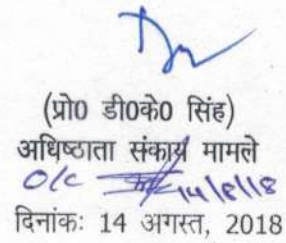 (प्रो0 डी0के0 सिंह)
अधिष्ठाता संकाय मामले
O/C 14/8/18
दिनांकः 14 अगस्त, 2018